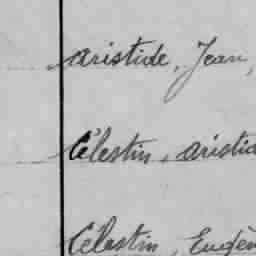 Aristide, Jean,
Célestin, Aristid
Célestin, Eugèn